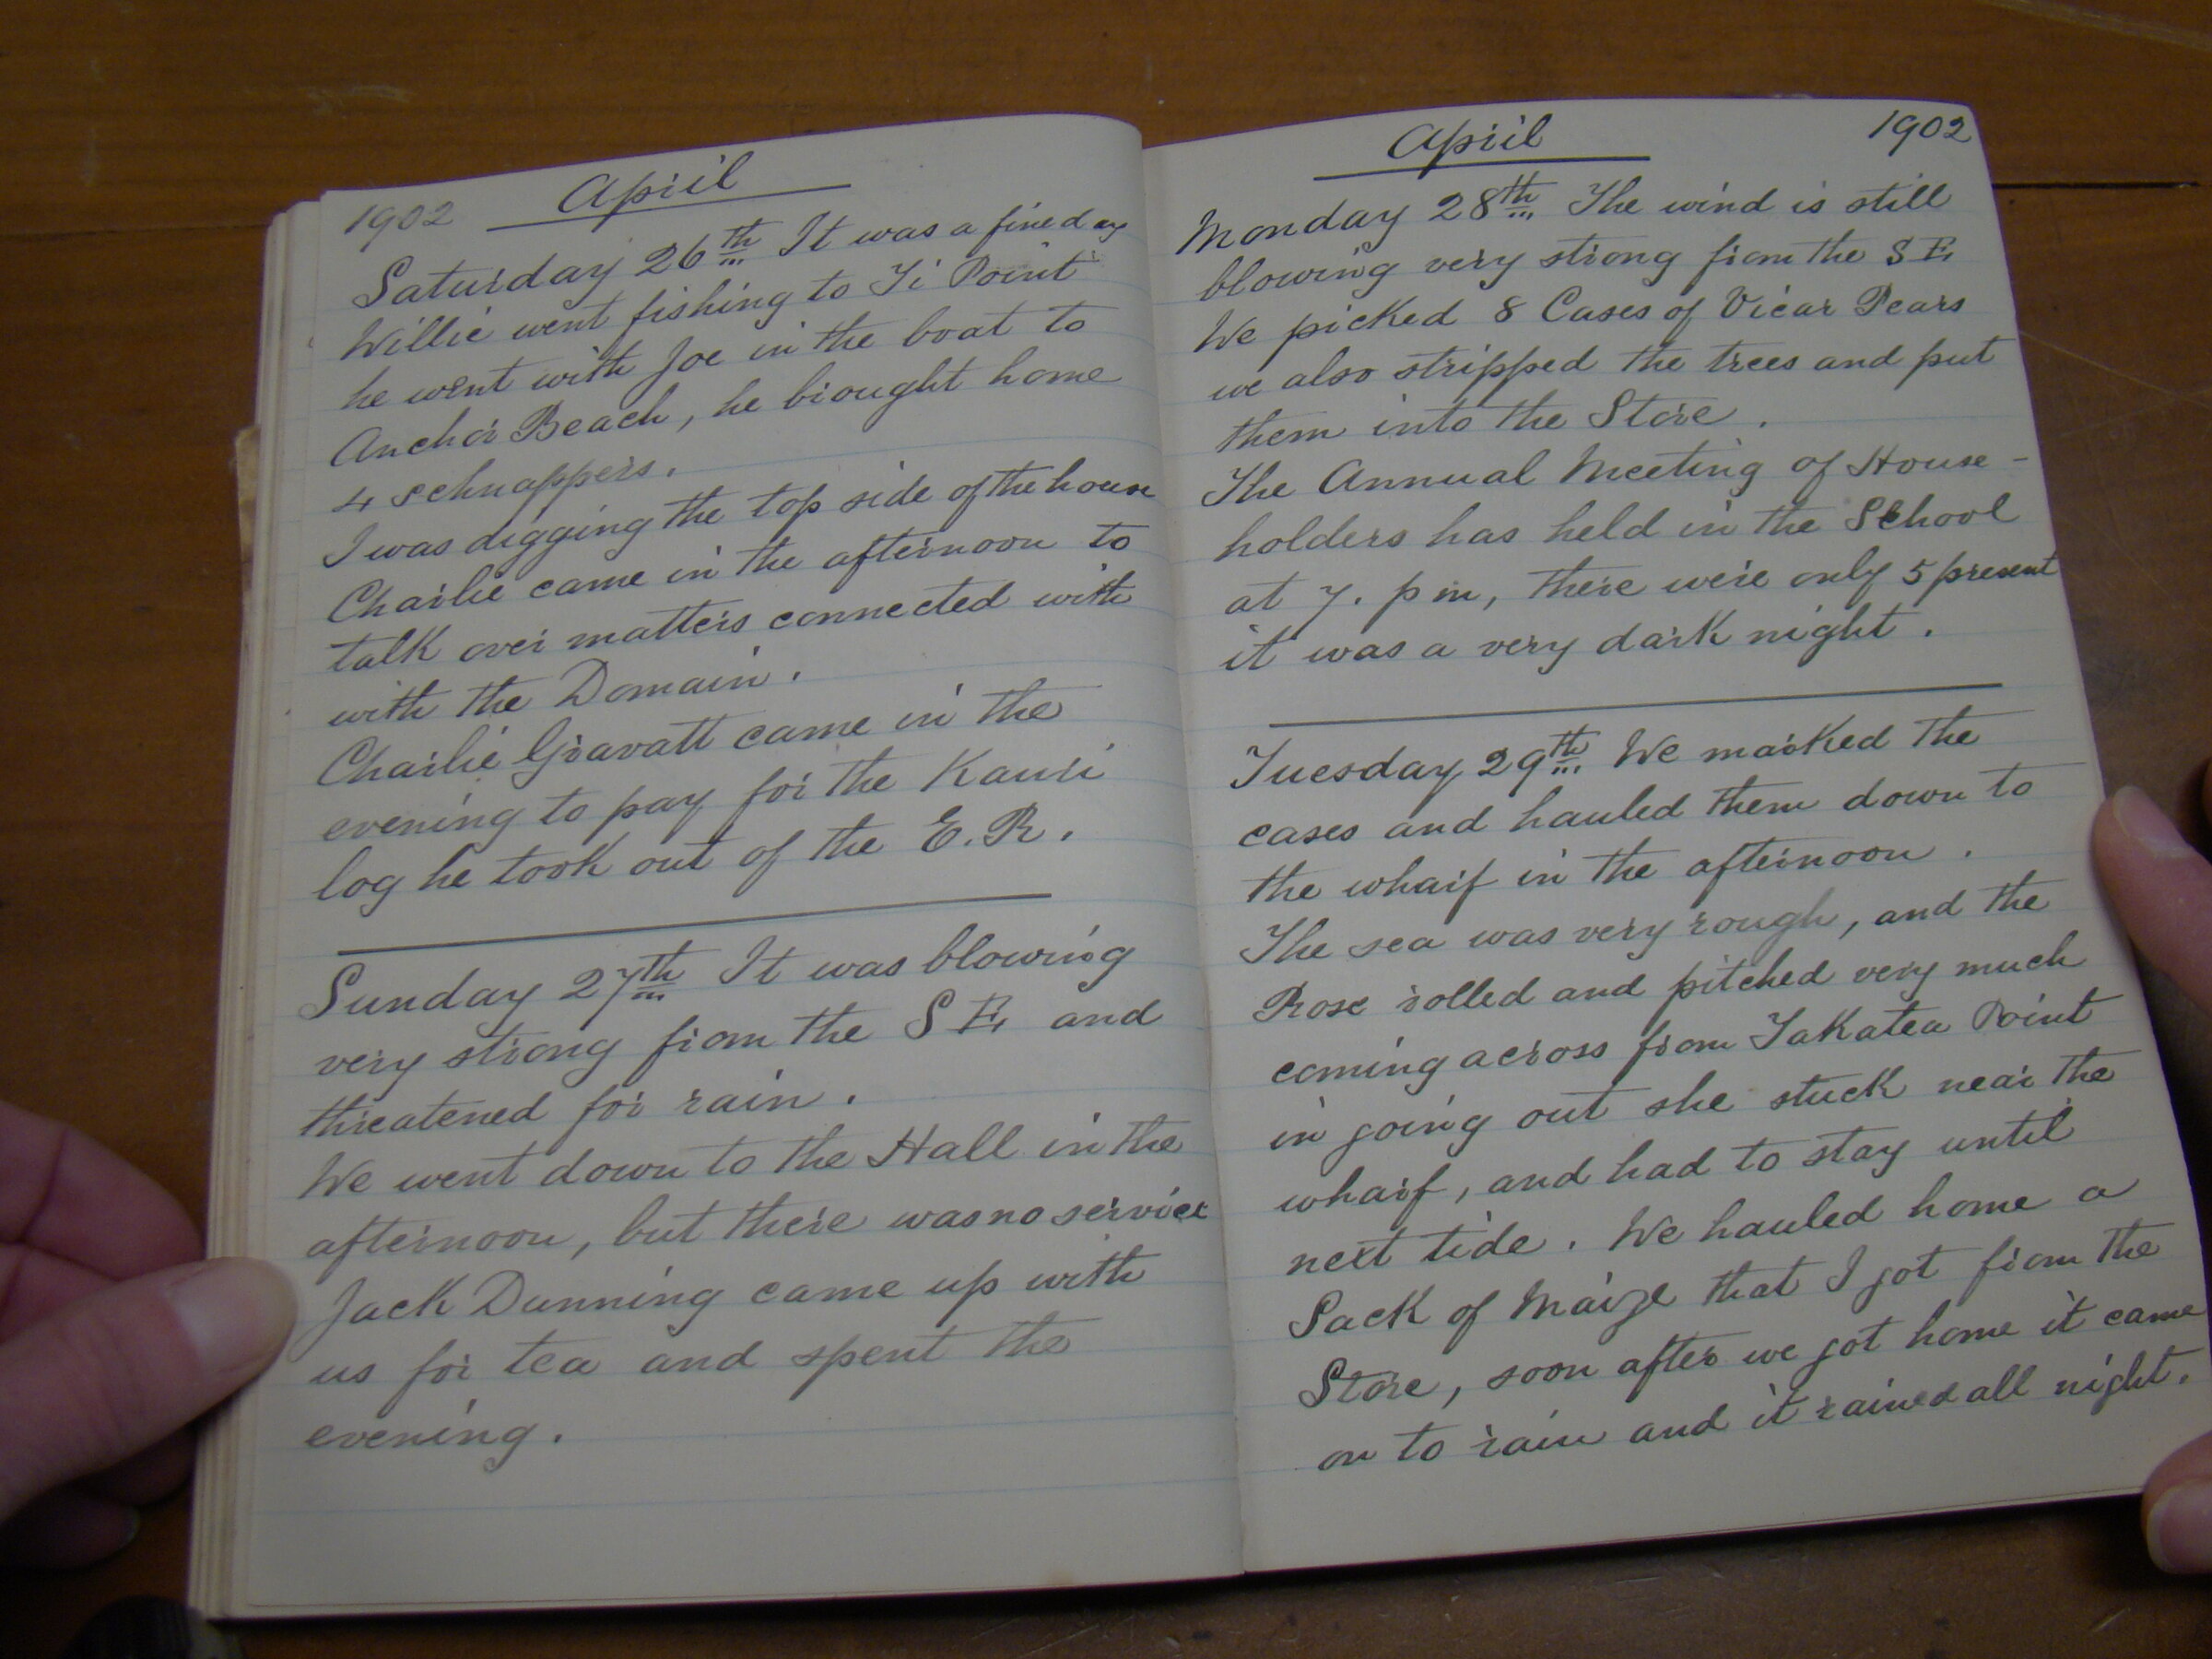 1902 April
Saturday 26th It was a fine day
Willie went fishing to Ti Point
he went with Joe in the boat to
Anchor Beach, he brought home
4 schnappers.
I was digging the top side of the house
Charlie came in the afternoon to
talk over matters connected with
with the Domain.
Charlie Gravatt came in the
evening to pay for the Kauri
log he took out of the E.R.
Sunday 27th It was blowing
very strong from the S E, and
threatened for rain.
We went down to the Hall in the
afternoon, but there was no service
Jack Dunning came up with
us for tea and spent the
evening.
April 1902
Monday 28th The wind is still
blowing very strong from the S E,
We picked 8 Cases of Vicar Pears
we also stripped the trees and put
them into the Store.
The Annual Meeting of House-
holders has held in the School
at 7. pm, there were only 5 present
it was a very dark night.
Tuesday 29th We marked the
cases and hauled them down to
the wharf in the afternoon.
The sea was very rough, and the
Rose rolled and pitched very much
coming across from Takatea Point
in going out she stuck near the
wharf, and had to stay until
next tide. We hauled home a
Sack of Maize that I got from the
Store, soon after we got home it came
on to rain and it rained all night.